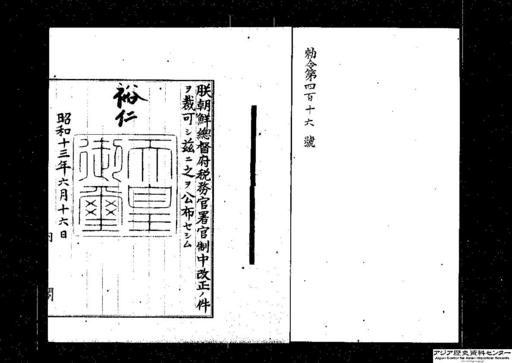 勅令第四百十六號
朕朝鮮總督府税務官署官制中改正ノ件
ヲ裁可シ茲ニ之ヲ公布セシム
裕仁
天皇
御璽
昭和十三年六月十六日
アジア歴史資料センター
Japan Center for Asian Historical Records